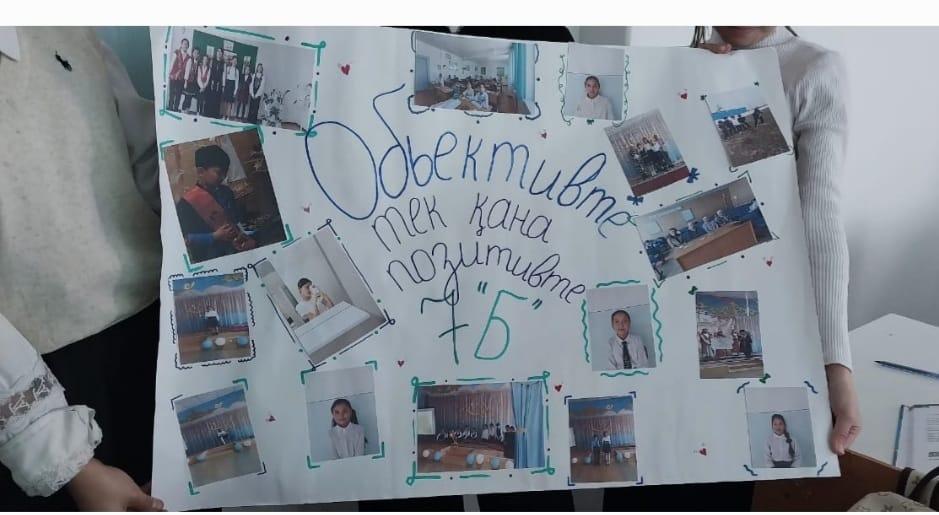 Обьективте
тек қана
позитивте
7 "Б"